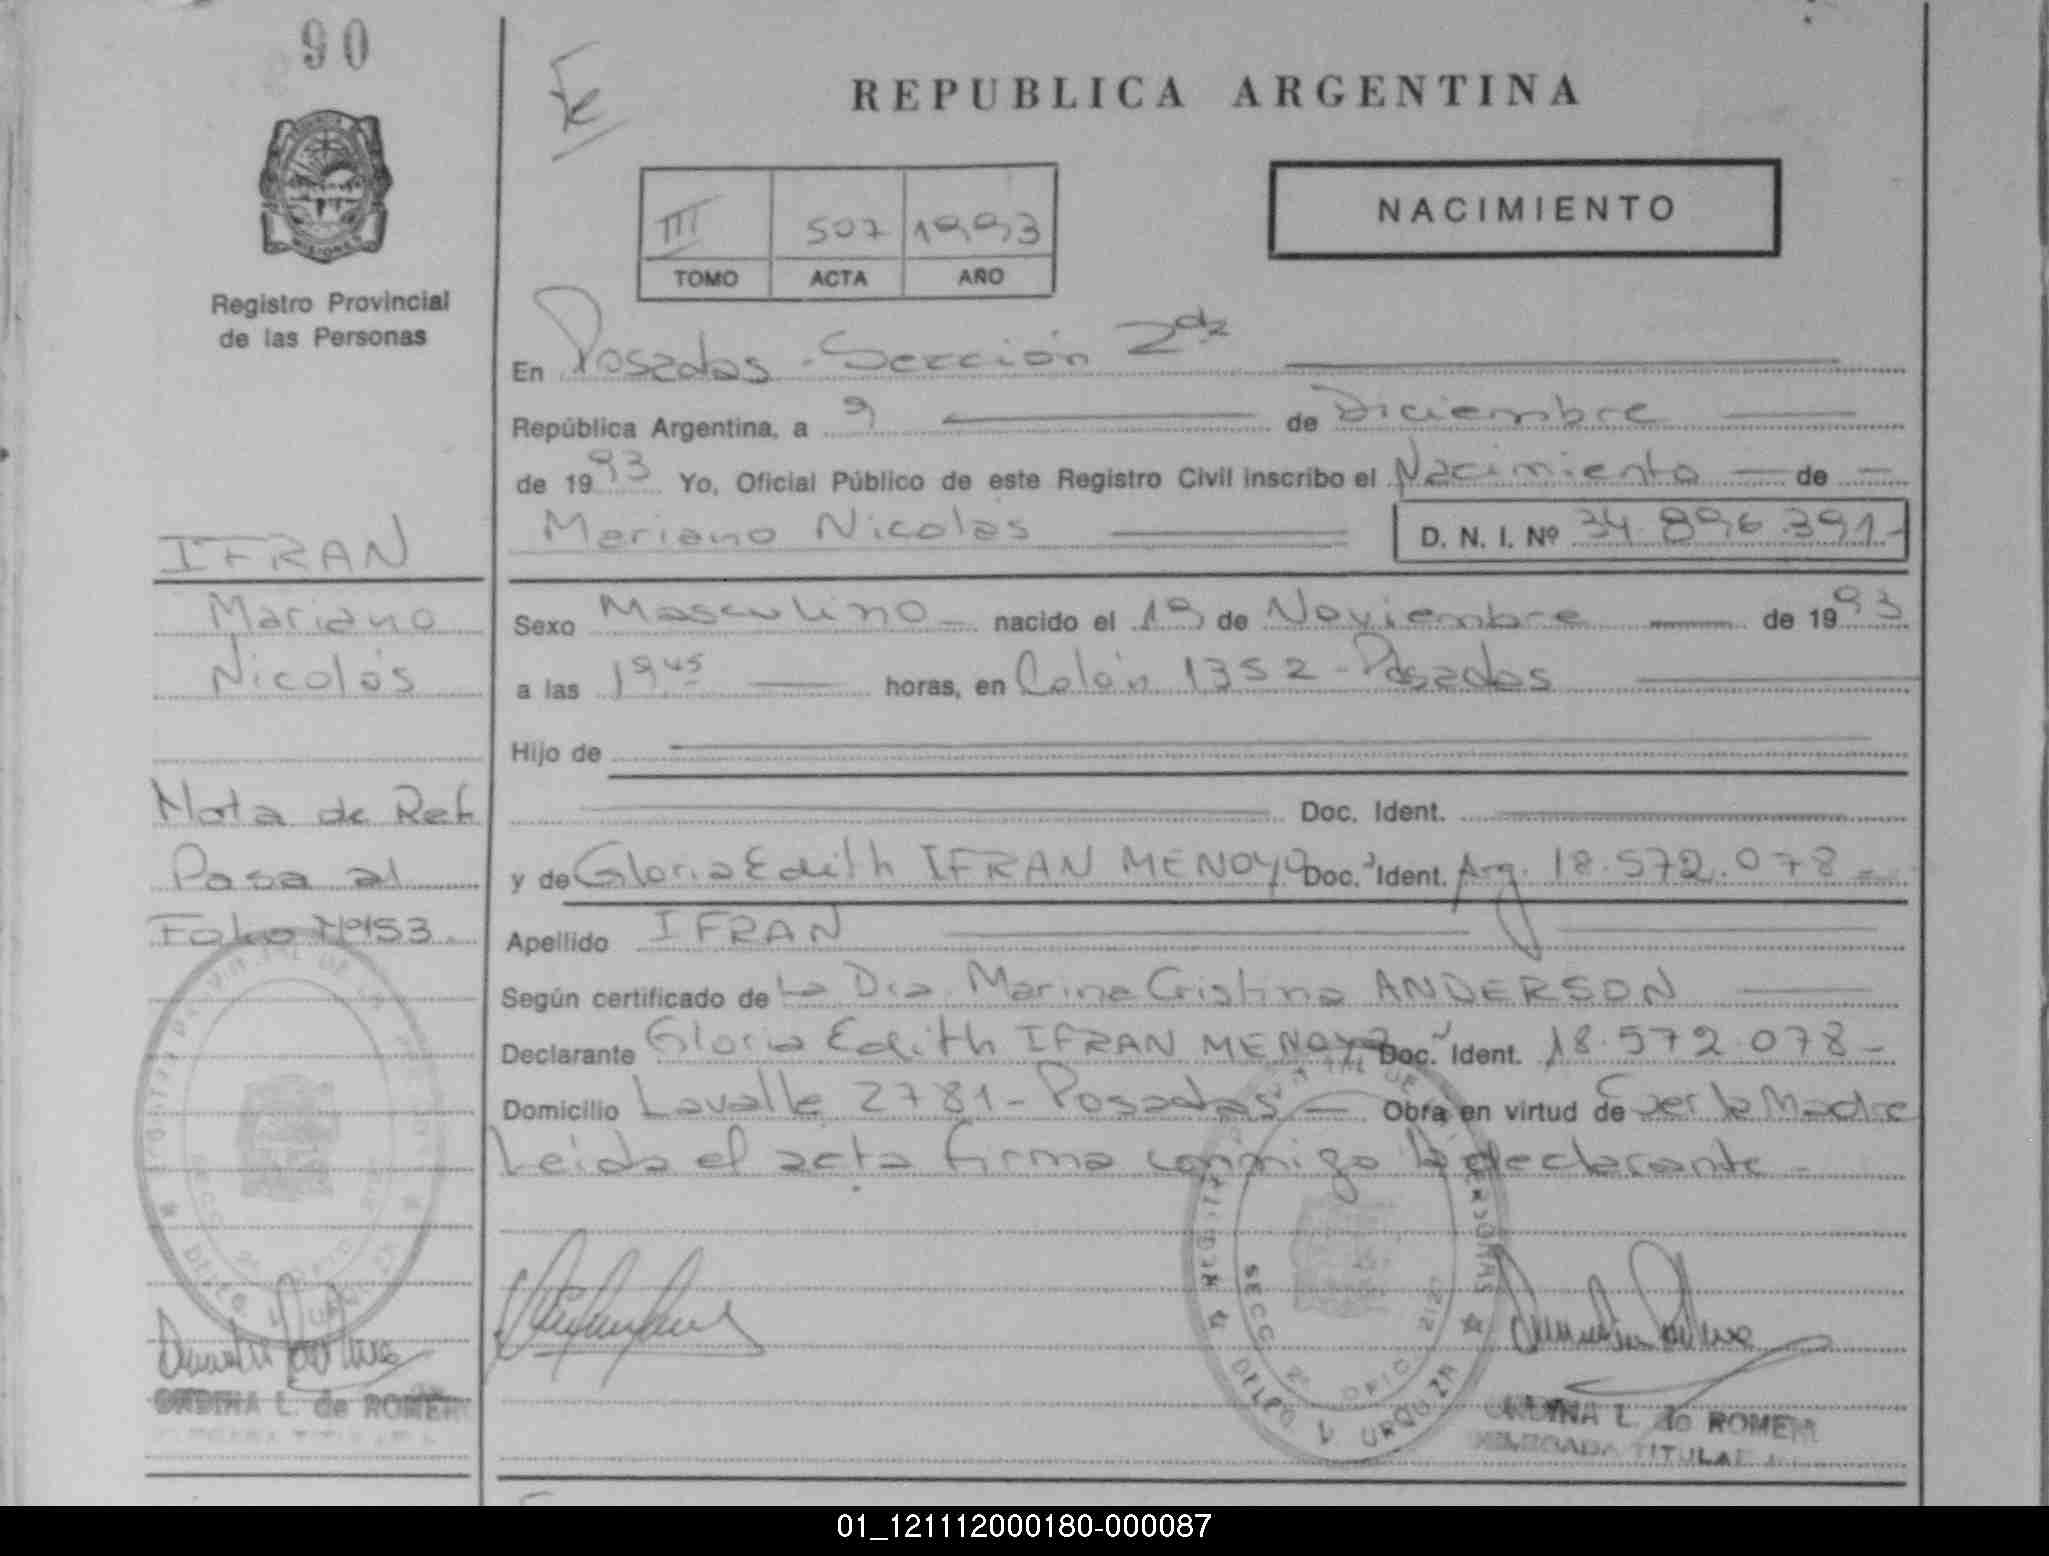 90
Registro Provincial
de las Personas
IFRAN
Mariano
Nicolás
Nota de Ref
Pasa al
Folio Nº 153.
REPUBLICA ARGENTINA
NACIMIENTO
III 507 1993
TOMO ACTA AÑO
En Posadas - Sección 2da
República Argentina, a 9 de Diciembre
de 1993 Yo, Oficial Público de este Registro Civil inscribo el Nacimiento de
Mariano Nicolás D. N. I. Nº 34.896.391-
Sexo Masculino nacido el 19 de Noviembre de 1993
a las 19 45 horas, en Colón 1352 - Posadas
Hijo de
Doc. Ident.
y de Gloria Edith IFRAN MENOYO Doc. Ident. Arg. 18.572.078-
Apellido IFRAN
Según certificado de la Dra. Marina Cristina ANDERSON
Declarante Gloria Edith IFRAN MENOYO Doc. Ident. 18.572.078-
Domicilio Lavalle 2781 - Posadas - Obra en virtud de ser la Madre
Leida el acta firma conmigo la declarante -
SECC 2ª OFIC
DELEG V URQUIZA
L. de ROMERO
L. de ROMERO
DELEGADA TITULAR
01_121112000180-000087